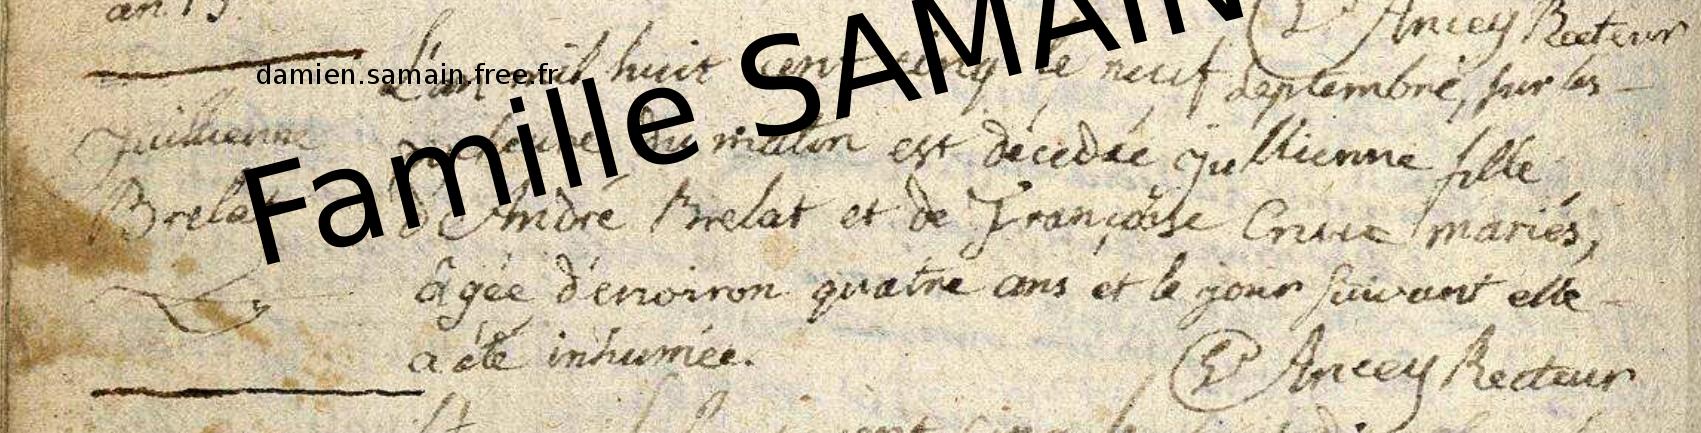 an 13.
Ancey Recteur
damien.samain.free.fr
Famille SAMAIN
L'an mil huit cent cinq le neuf septembre, sur les
heure du matin est décédée Jullienne fille
Juillienne
Brelat
d'André Brelat et de Françoise mariés,
âgée d'environ quatre ans et le jour suivant elle
a été inhumée.
Ancey Recteur